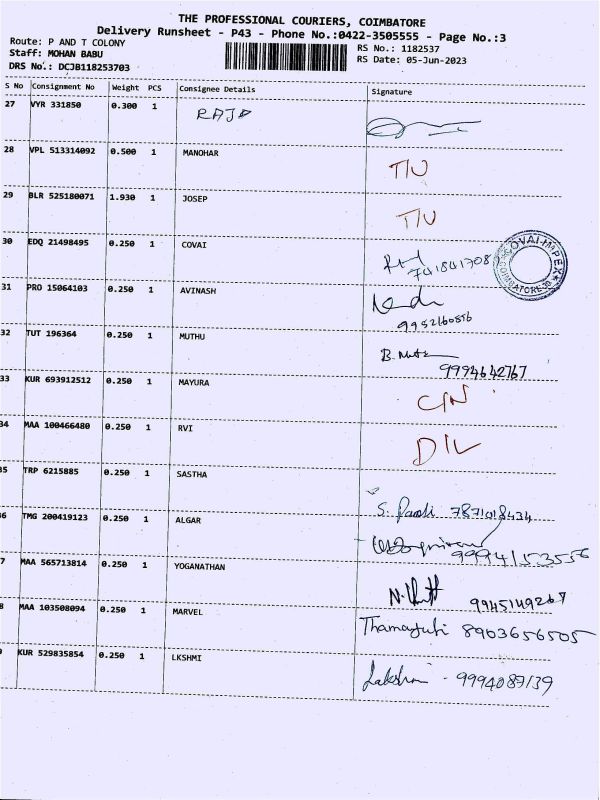 THE PROFESSIONAL COURIERS, COIMBATORE
Delivery Runsheet - P43 - Phone No.:0422-3505555 - Page No.:3
Route: P AND T COLONY
Staff: MOHAN BABU
DRS No.: DCJB118253703
RS No.: 1182537
RS Date: 05-Jun-2023
S No Consignment No Weight PCS Consignee Details Signature
27 VYR 331850 0.300 1 RAJ
28 VPL 513314092 0.500 1 MANOHAR T/U
29 BLR 525180071 1.930 1 JOSEP T/U
30 EDQ 21498495 0.250 1 COVAI
COVAI IMPEX
COIMBATORE
31 PRO 15064103 0.250 1 AVINASH
9952160856
32 TUT 196364 0.250 1 MUTHU B.
9994642767
33 KUR 693912512 0.250 1 MAYURA C/N
34 MAA 100466480 0.250 1 RVI D/L
35 TRP 6215885 0.250 1 SASTHA
S. 7871018434
36 TMG 200419123 0.250 1 ALGAR
9994153556
7 MAA 565713814 0.250 1 YOGANATHAN
9945149267
8 MAA 103508094 0.250 1 MARVEL
8903656505
9 KUR 529835854 0.250 1 LKSHMI
Lakshmi - 9994087139